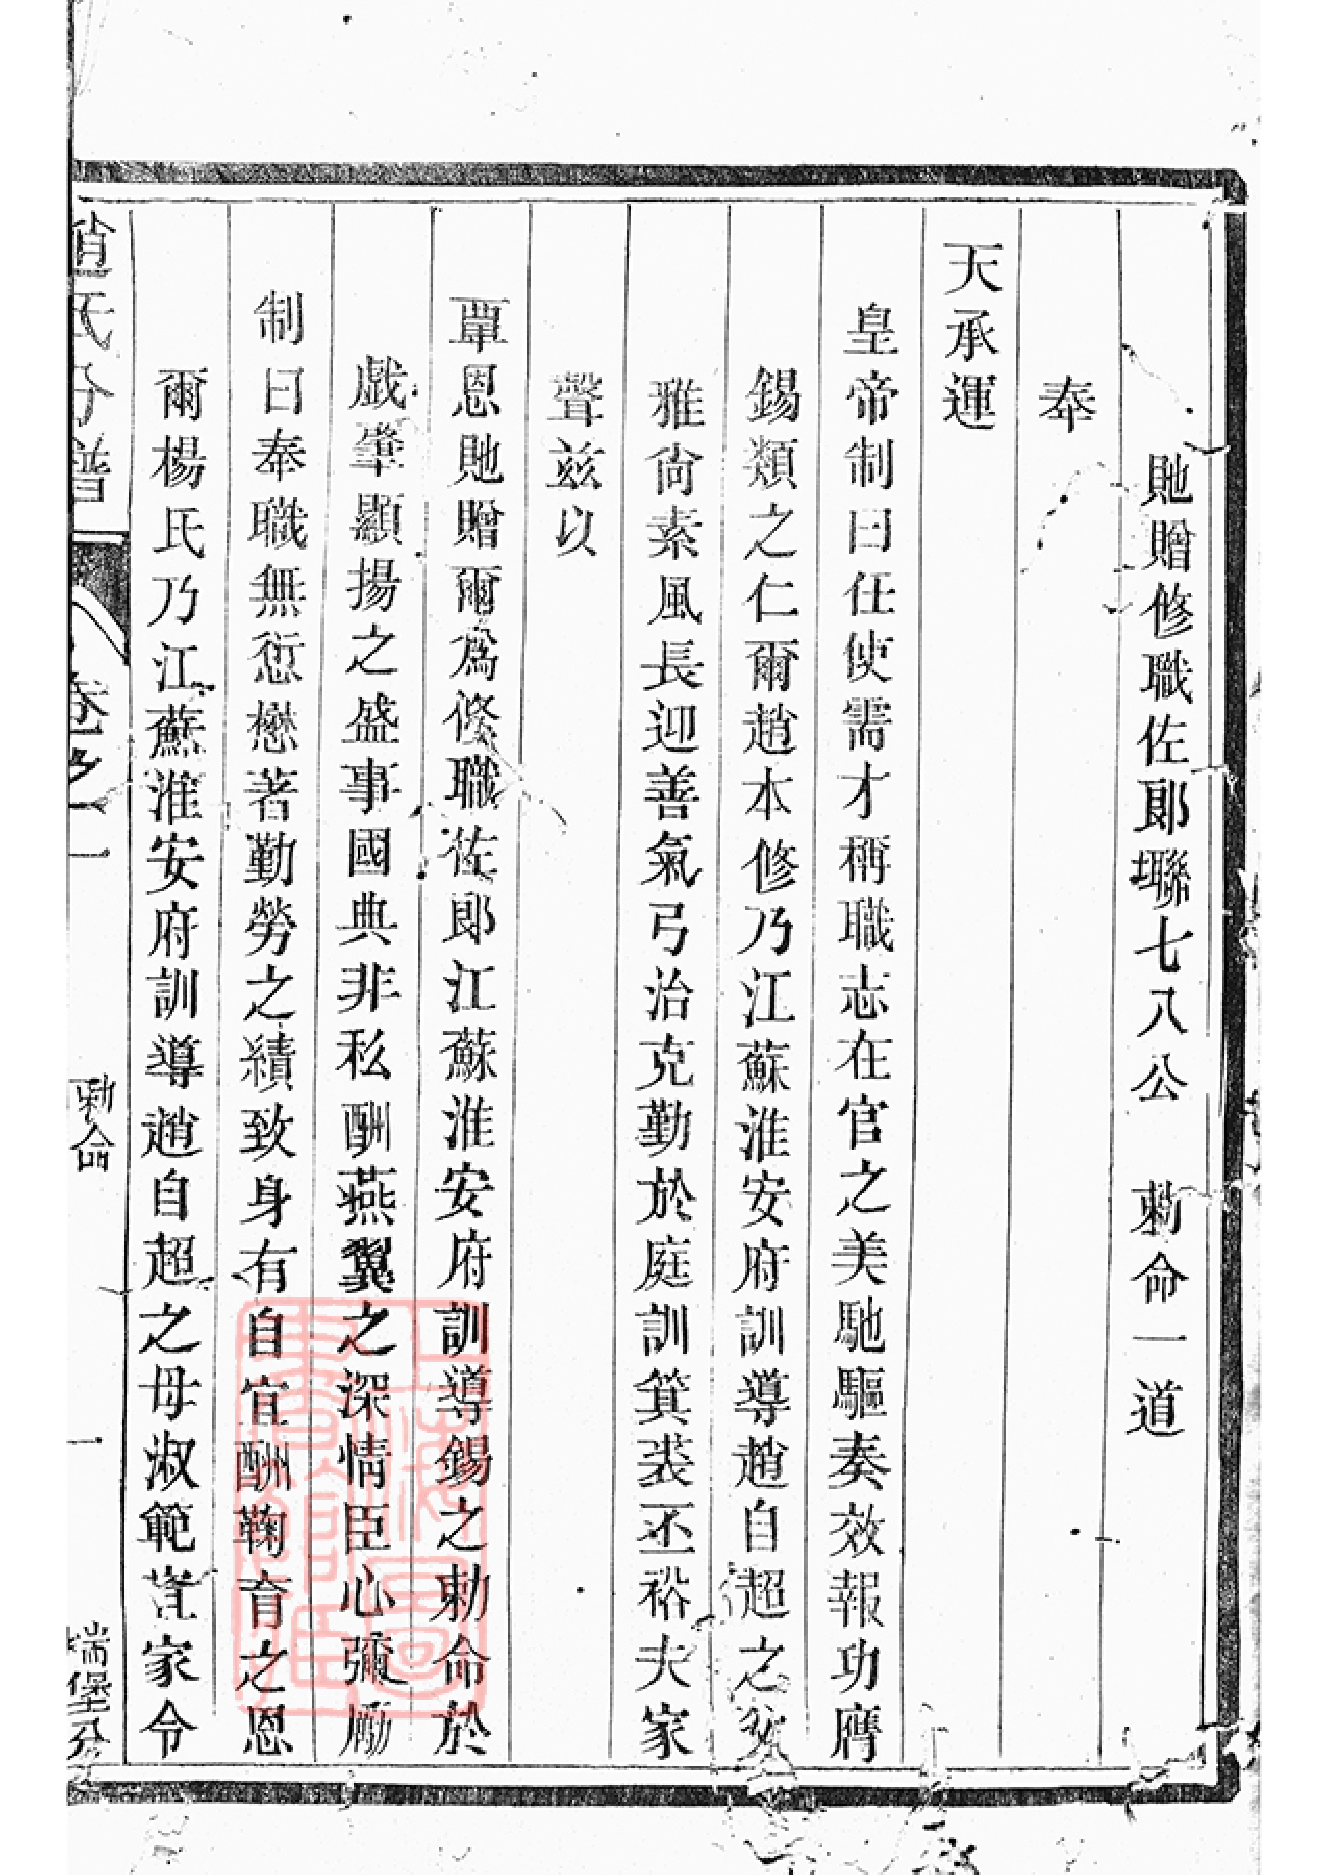 貤贈修職佐郞聮七八公　勅命一道
奉
天承運
皇帝制曰任使需才稱職志在官之美馳驅奏效報功膺
錫類之仁爾趙本修乃江蘇淮安府訓導趙自超之父
雅尙素風長迎善氣弓治克勤於庭訓箕裘丕裕夫家
聲兹以
覃恩貤贈爾爲修職佐郞江蘇淮安府訓導錫之勅命於
戲肇顯揚之盛事國典非私酬燕翼之深情臣心彌勵
制曰奉職無愆懋著勤勞之績致身有自宜酬鞠育之恩
爾楊氏乃江蘇淮安府訓導趙自超之母淑範宜家令
趙氏分譜
卷之一
勅命
一
瑞堡分
上海圖書館藏